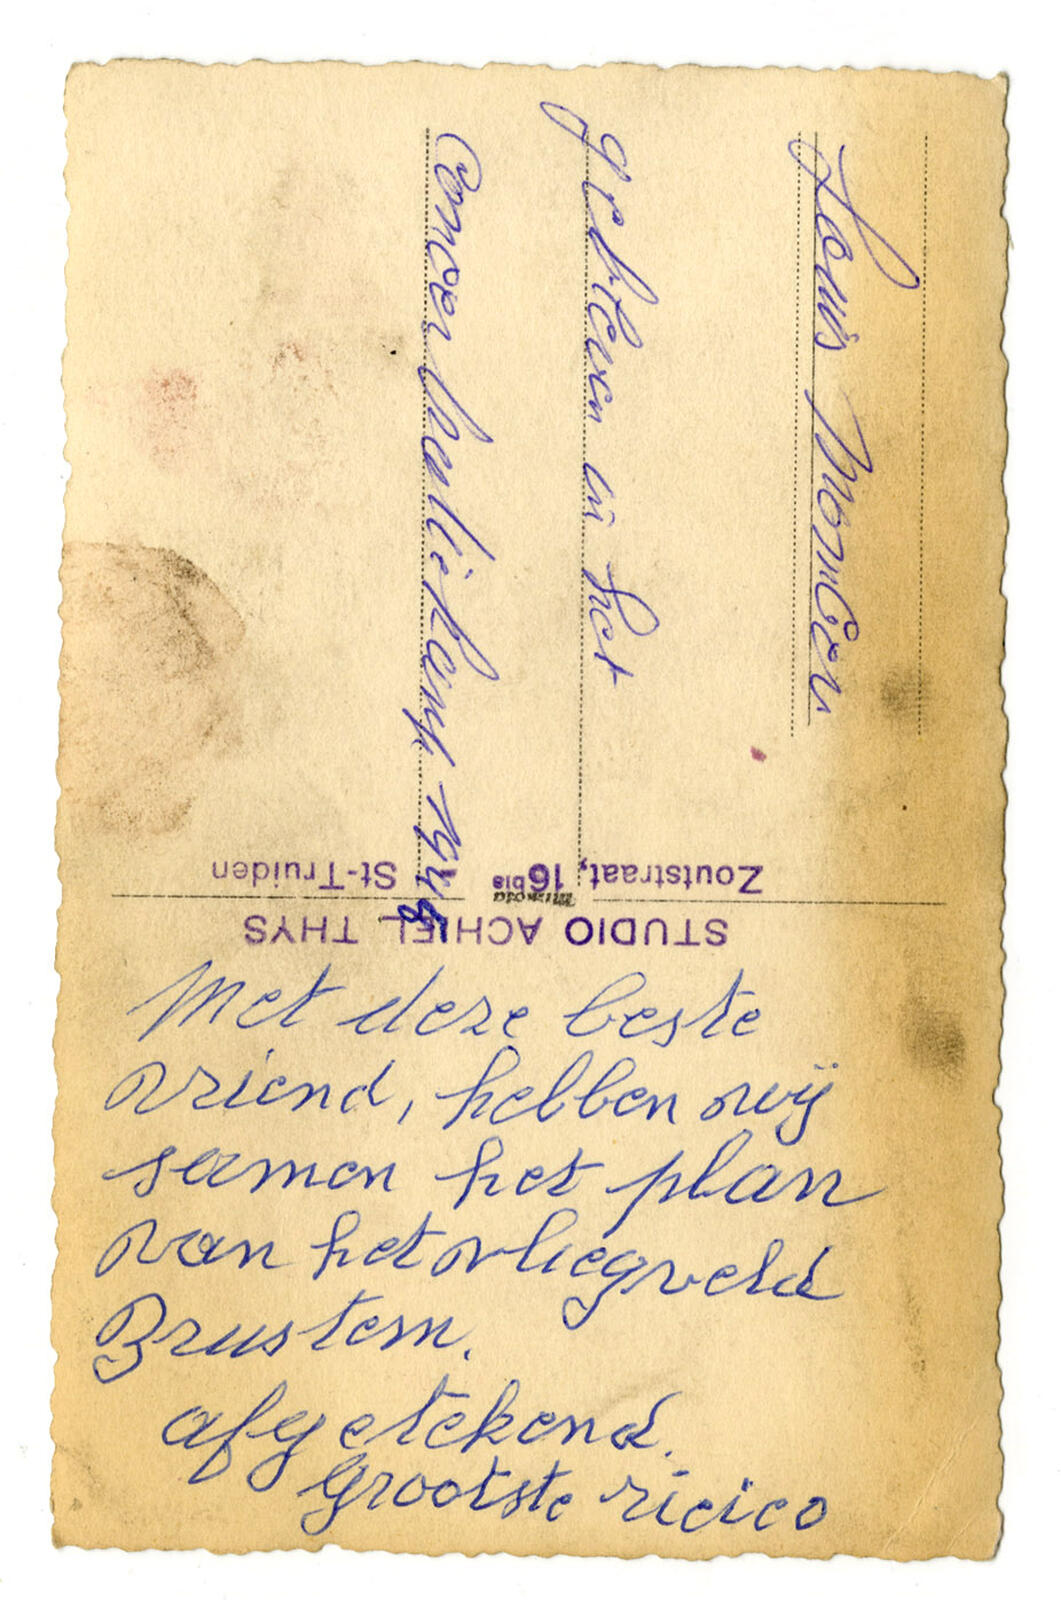 Louis Morren
gebleven in het
Concentratiekamp 1948
STUDIO ACHIEL THYS
Zoutstraat, 16 bis St-Truiden
Met deze beste
vriend, hebben wij
samen het plan
van het vliegveld
Brustem.
afgetekend.
Grootste ricico